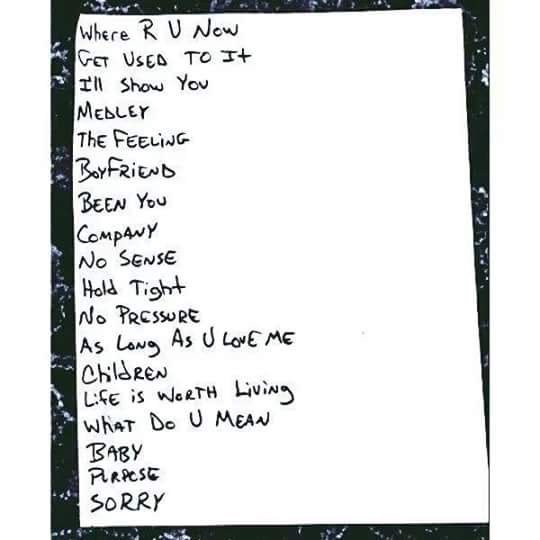 Where R U Now
GET USED TO It
I'll Show You
MEDLEY
The FEELING
BOYFRIEND
BEEN You
COMPANY
No SENSE
Hold Tight
No PRESSURE
As Long As U LOVE ME
ChildREN
LiFE is WORTH Living
WHAT Do U MEAN
BABY
PURPOSE
SORRY